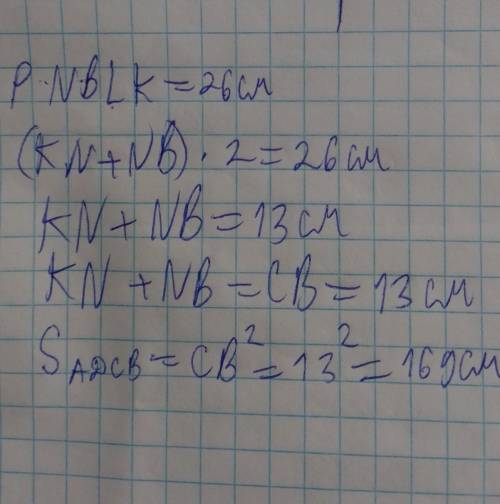 P NBLK = 26 см
(KN + NB) · 2 = 26 см
KN + NB = 13 см
KN + NB = CB = 13 см
S ADCB = CB² = 13² = 169 см